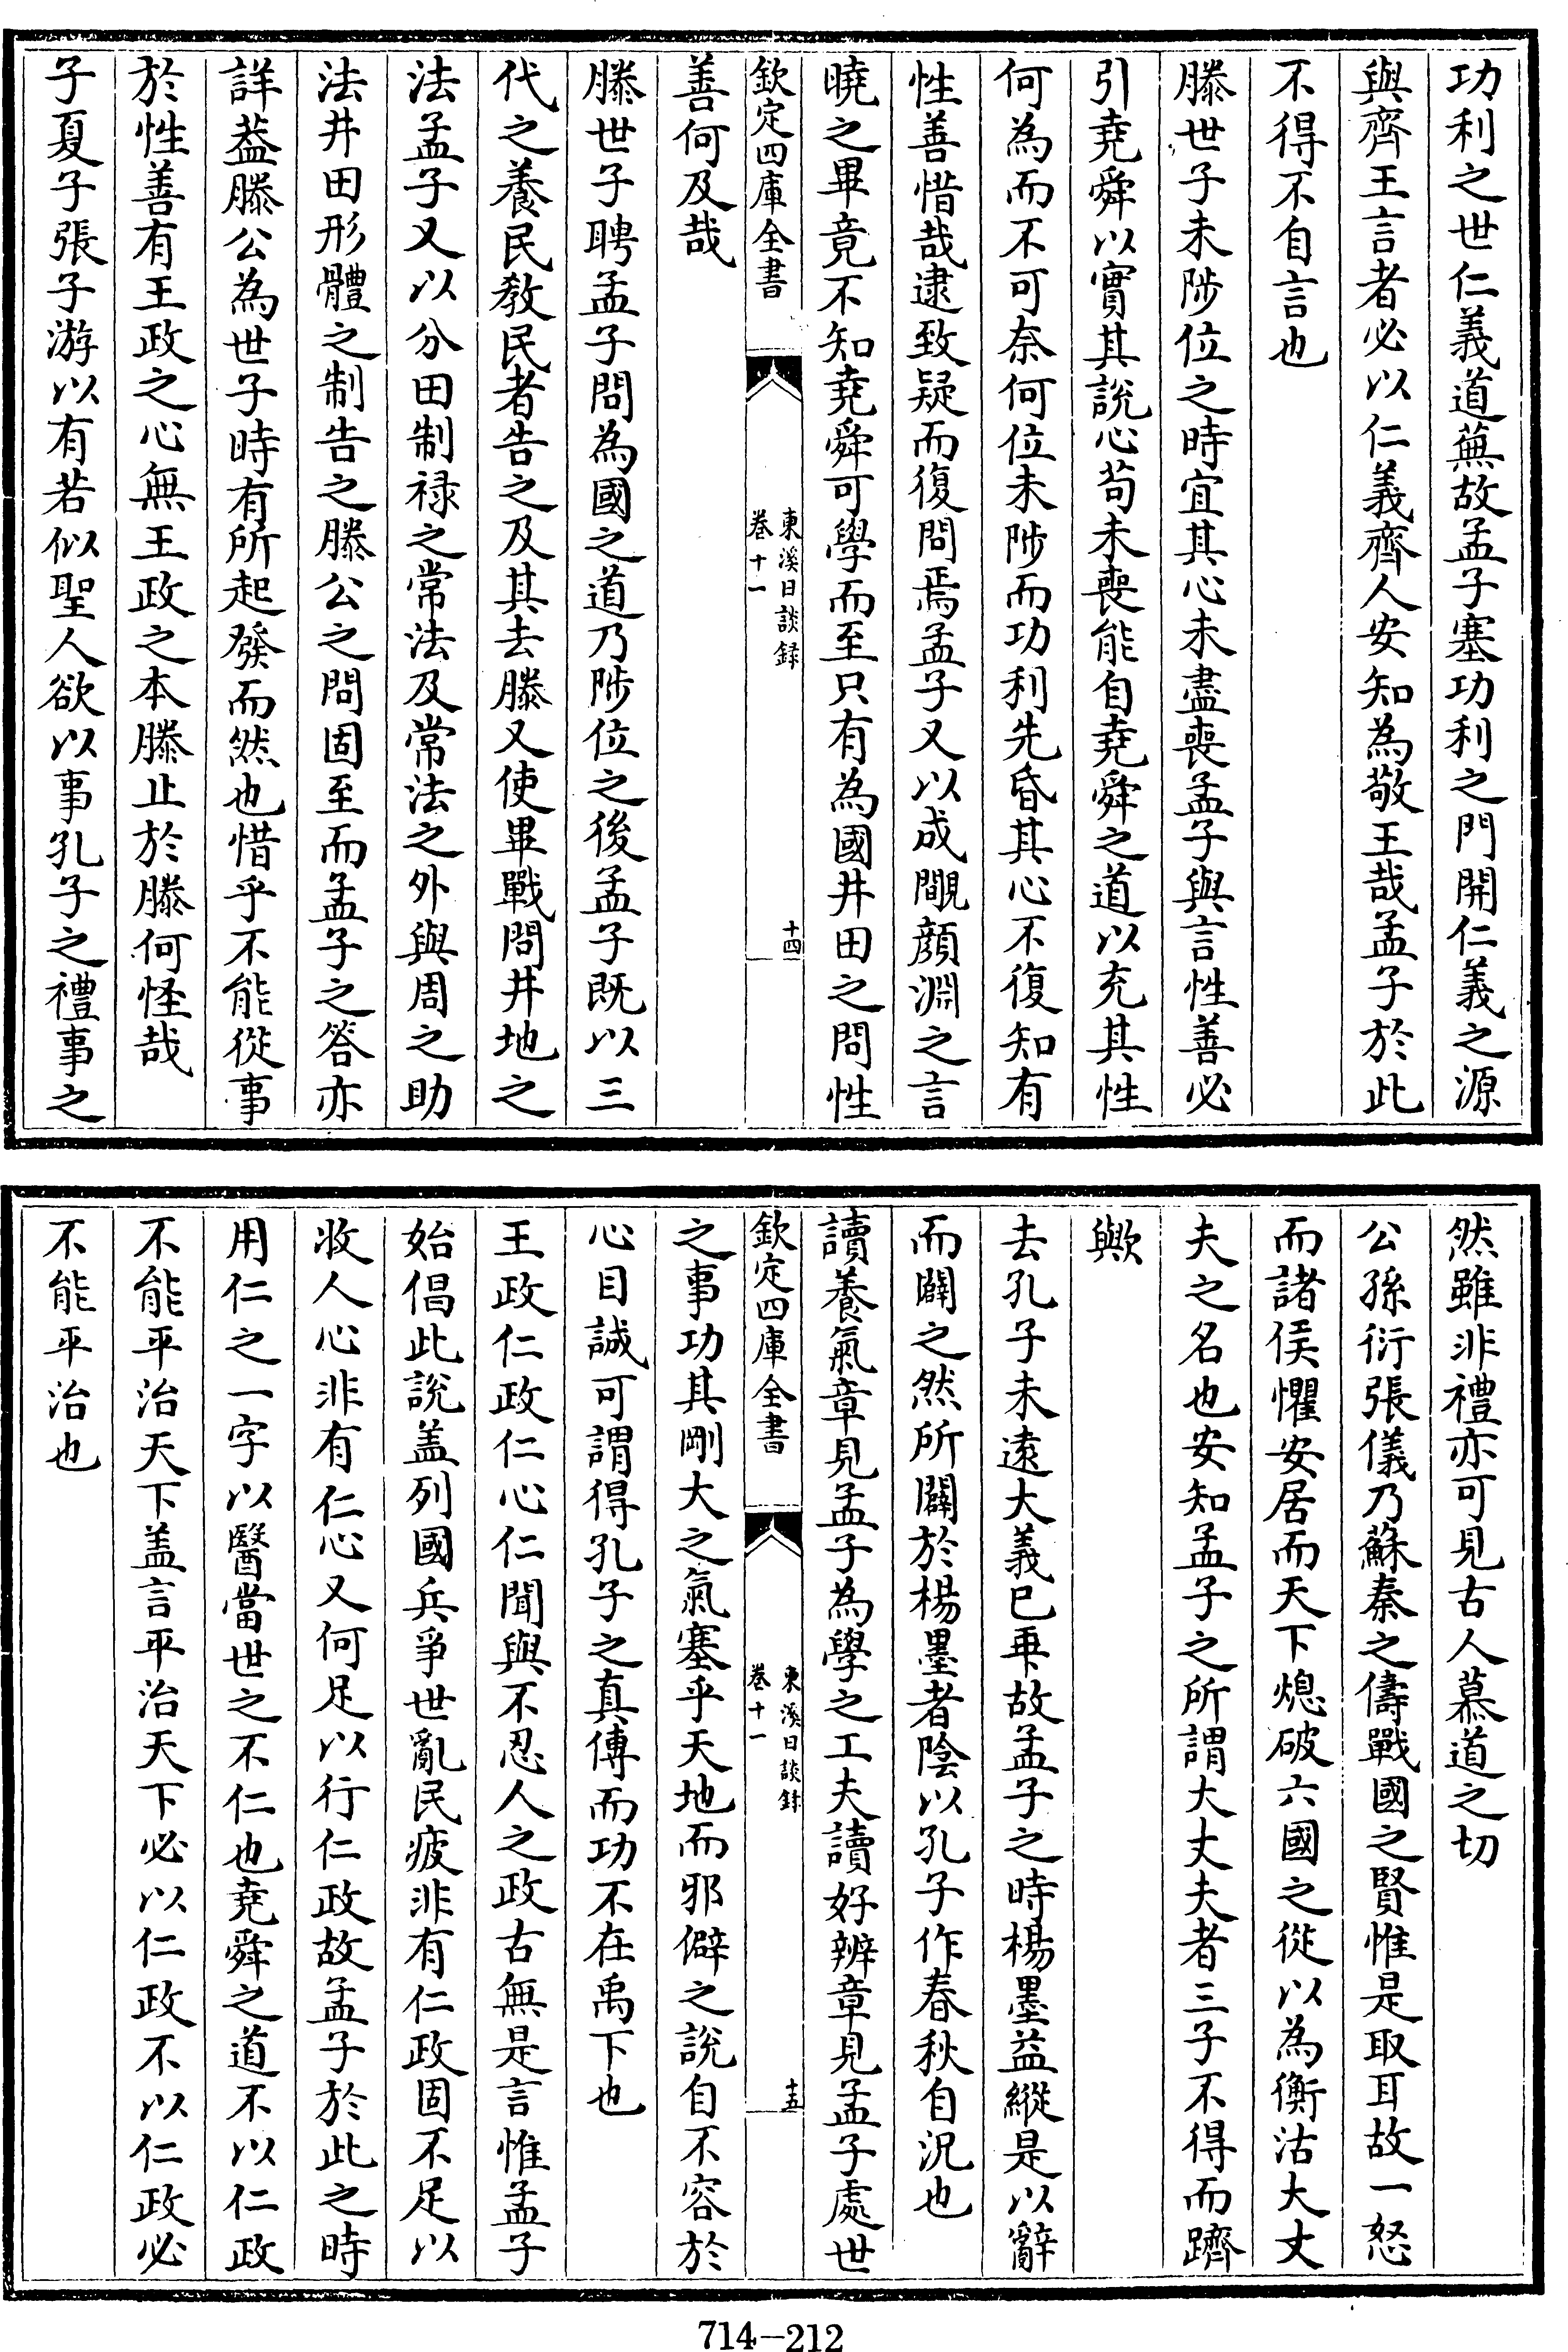 功利之世仁義道蕪故孟子塞功利之門開仁義之源
與齊王言者必以仁義齊人安知為敬王哉孟子於此
不得不自言也
滕世子未陟位之時宜其心未盡喪孟子與言性善必
引堯舜以實其說心苟未喪能自堯舜之道以充其性
何為而不可奈何位未陟而功利先昏其心不復知有
性善惜哉逮致疑而復問焉孟子又以成覵顔淵之言
曉之畢竟不知堯舜可學而至只有為國井田之問性
欽定四庫全書
東溪日談録
卷十一
十四
善何及哉
滕世子聘孟子問為國之道乃陟位之後孟子既以三
代之養民教民者告之及其去滕又使畢戰問井地之
法孟子又以分田制禄之常法及常法之外與周之助
法井田形體之制告之滕公之問固至而孟子之答亦
詳葢滕公為世子時有所起發而然也惜乎不能從事
於性善有王政之心無王政之本滕止於滕何怪哉
子夏子張子游以有若似聖人欲以事孔子之禮事之
然雖非禮亦可見古人慕道之切
公孫衍張儀乃蘇秦之儔戰國之賢惟是取耳故一怒
而諸侯懼安居而天下熄破六國之從以為衡沽大丈
夫之名也安知孟子之所謂大丈夫者三子不得而躋
歟
去孔子未遠大義已乖故孟子之時楊墨益縱是以辭
而闢之然所闢於楊墨者陰以孔子作春秋自況也
讀養氣章見孟子為學之工夫讀好辨章見孟子處世
欽定四庫全書
東溪日談録
卷十一
十五
之事功其剛大之氣塞乎天地而邪僻之說自不容於
心目誠可謂得孔子之真傳而功不在禹下也
王政仁政仁心仁聞與不忍人之政古無是言惟孟子
始倡此說盖列國兵爭世亂民疲非有仁政固不足以
收人心非有仁心又何足以行仁政故孟子於此之時
用仁之一字以醫當世之不仁也堯舜之道不以仁政
不能平治天下盖言平治天下必以仁政不以仁政必
不能平治也
714-212